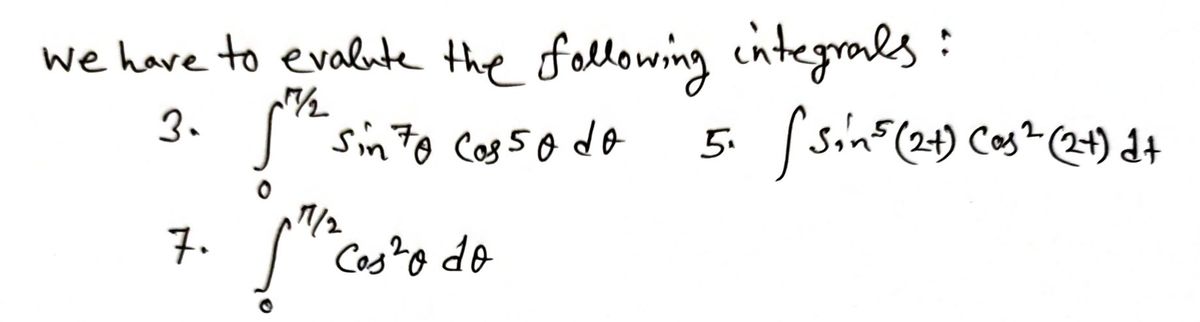 We have to evalute the following integrals :
3. ∫₀^{π/2} sin⁷θ cos⁵θ dθ 5. ∫ sin⁵(2t) cos²(2t) dt
7. ∫₀^{π/2} cos²θ dθ